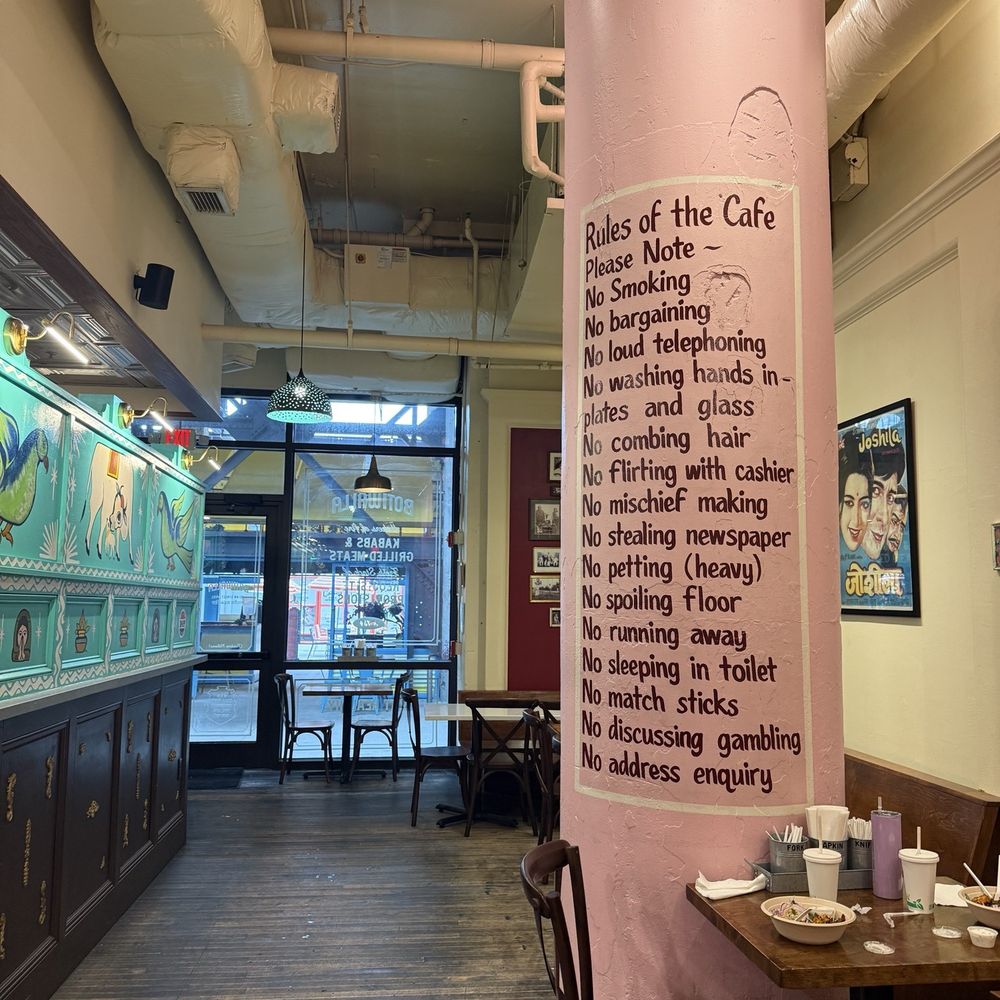 Rules of the Cafe
Please Note ~
No Smoking
No bargaining
No loud telephoning
No washing hands in-
plates and glass
No combing hair
No flirting with cashier
No mischief making
No stealing newspaper
No petting (heavy)
No spoiling floor
No running away
No sleeping in toilet
No match sticks
No discussing gambling
No address enquiry
EXIT
BOTIWALLA
KABABS &
GRILLED MEATS
Joshila
जोशीला
FORK
NAPKIN
KNIF